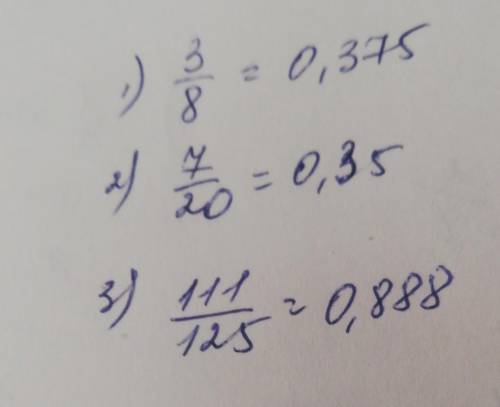 1) 3/8 = 0,375
2) 7/20 = 0,35
3) 111/125 = 0,888